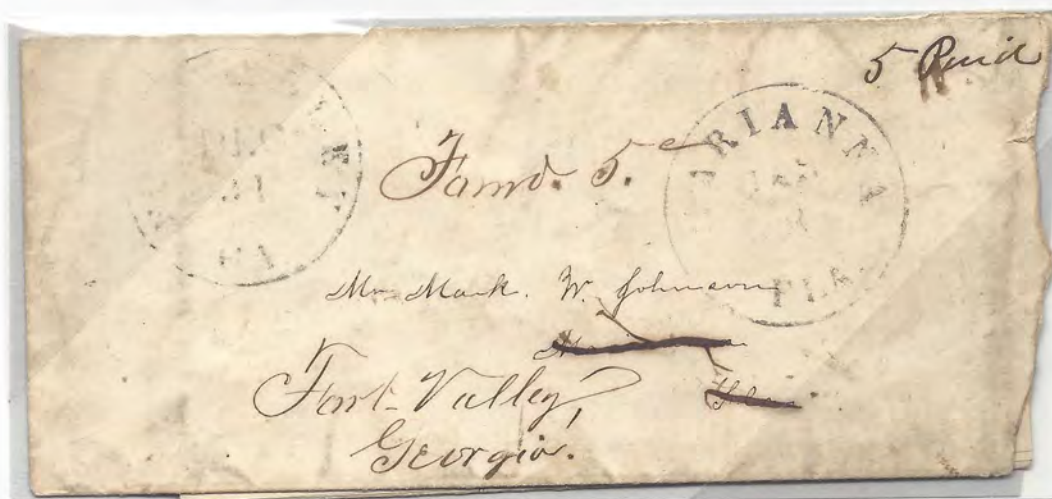 5 Paid
Forwd. 5.c
ARIANNA
FLA.
DEC
31
GA
Mr Mark. W. Johnson
Fla.
Fort Valley,
Georgia.